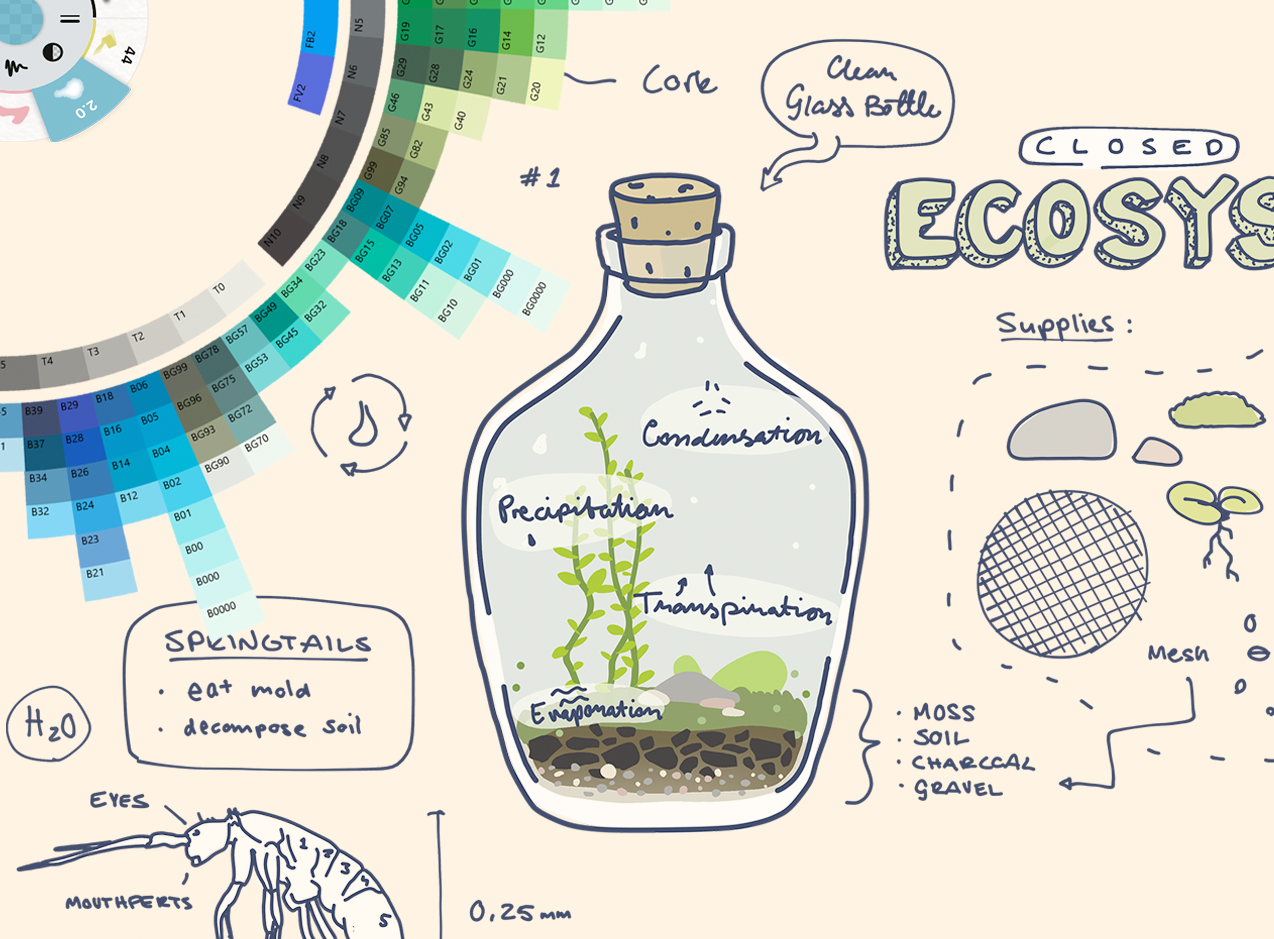 FB2
FV2
N5
N6
N7
N8
N9
N10
T0
T1
T2
T3
T4
G19
G17
G16
G14
G12
G29
G28
G24
G21
G20
G46
G43
G40
G85
G82
G99
G94
BG09
BG07
BG05
BG02
BG01
BG000
BG0000
BG18
BG15
BG13
BG11
BG10
BG23
BG34
BG32
BG49
BG45
BG57
BG53
BG78
BG75
BG72
BG70
BG99
BG96
BG93
BG90
B06
B05
B04
B02
B01
B00
B000
B0000
B18
B16
B14
B12
B29
B28
B26
B24
B23
B21
B39
B37
B34
B32
44
2.0
Cork
Clean
Glass Bottle
#1
CLOSED
ECOSYS
Supplies:
Condensation
Precipitation
Transpiration
Evaporation
Mesh
SPRINGTAILS
• eat mold
• decompose soil
H2O
• MOSS
• SOIL
• CHARCOAL
• GRAVEL
EYES
MOUTHPERTS
1 2 3 4 5
0.25mm